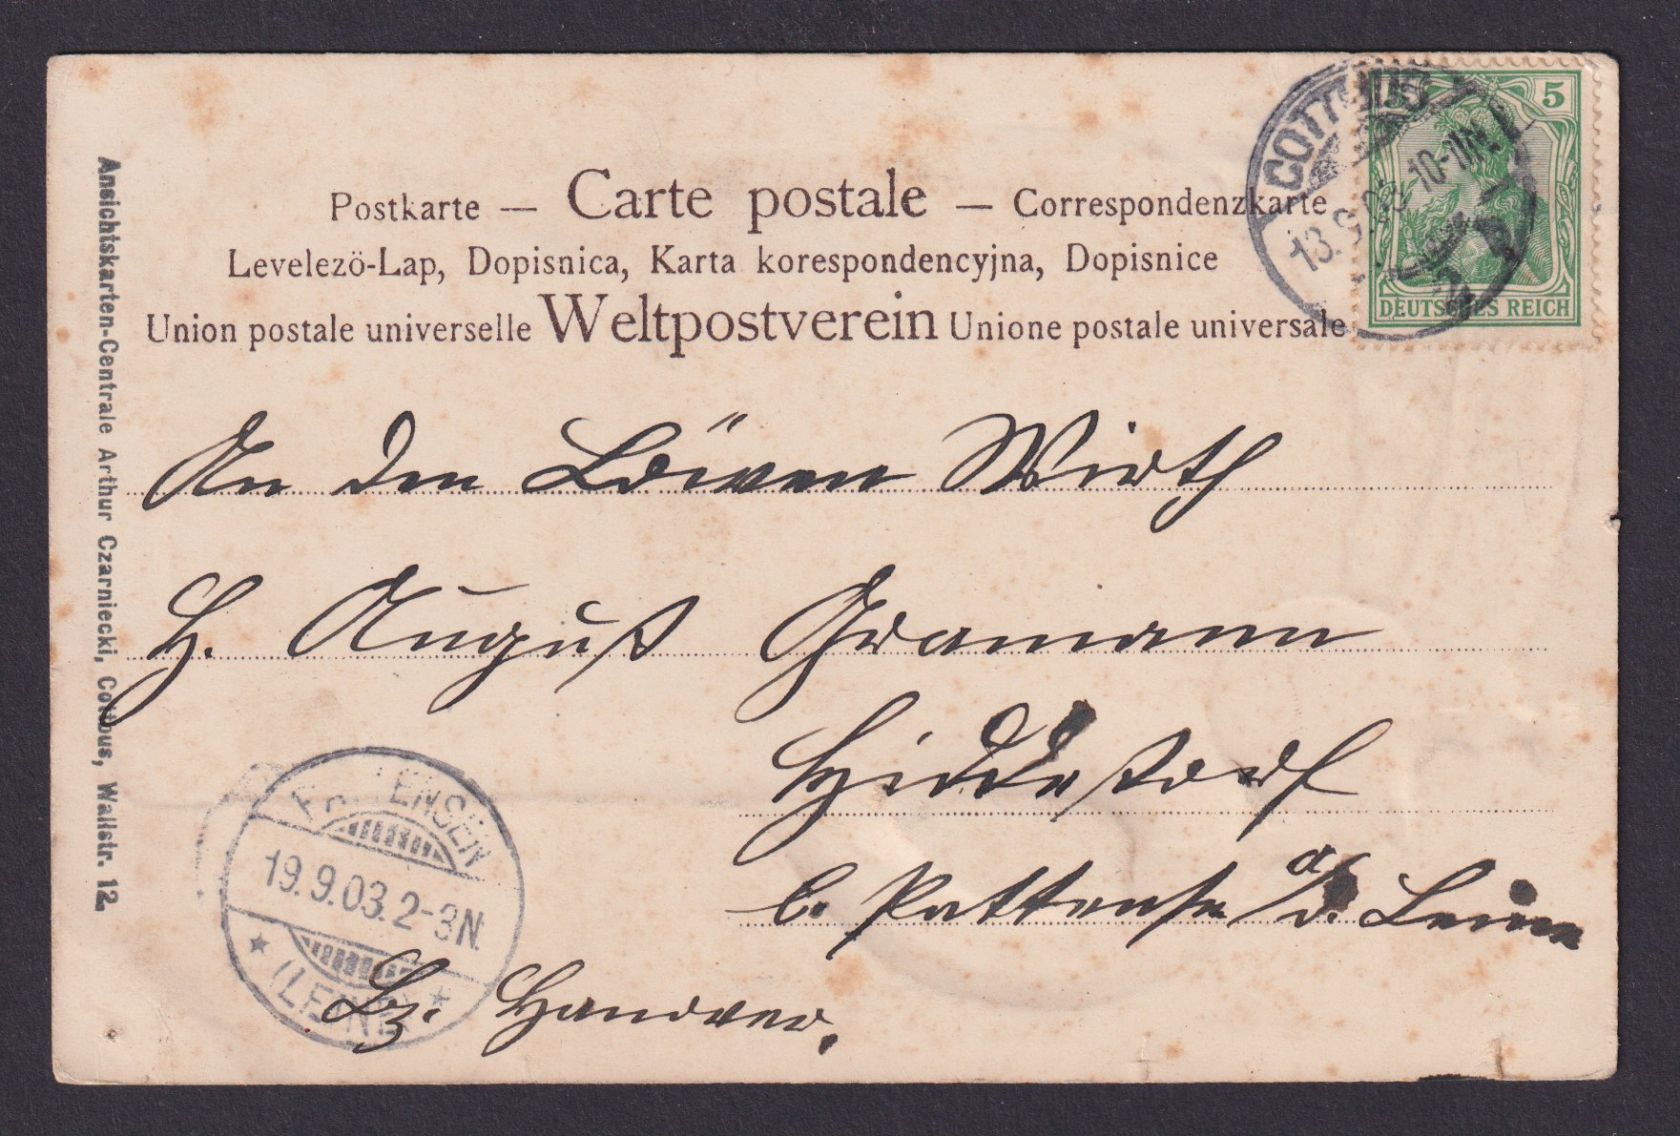 Postkarte — Carte postale — Correspondenzkarte
Levelezö-Lap, Dopisnica, Karta korespondencyjna, Dopisnice
Union postale universelle Weltpostverein Unione postale universale
5
DEUTSCHES REICH
COTTBUS
13.9.03 10-11N.
Ansichtskarten-Centrale Arthur Czarniecki, Cottbus, Wallstr. 12.
An den Löwen Wirth
H. August Gramann
Hiddestorf
b. Pattensen a/d. Leine
Bz. Hanover.
PATTENSEN
19.9.03. 2-3N.
(LEINE)